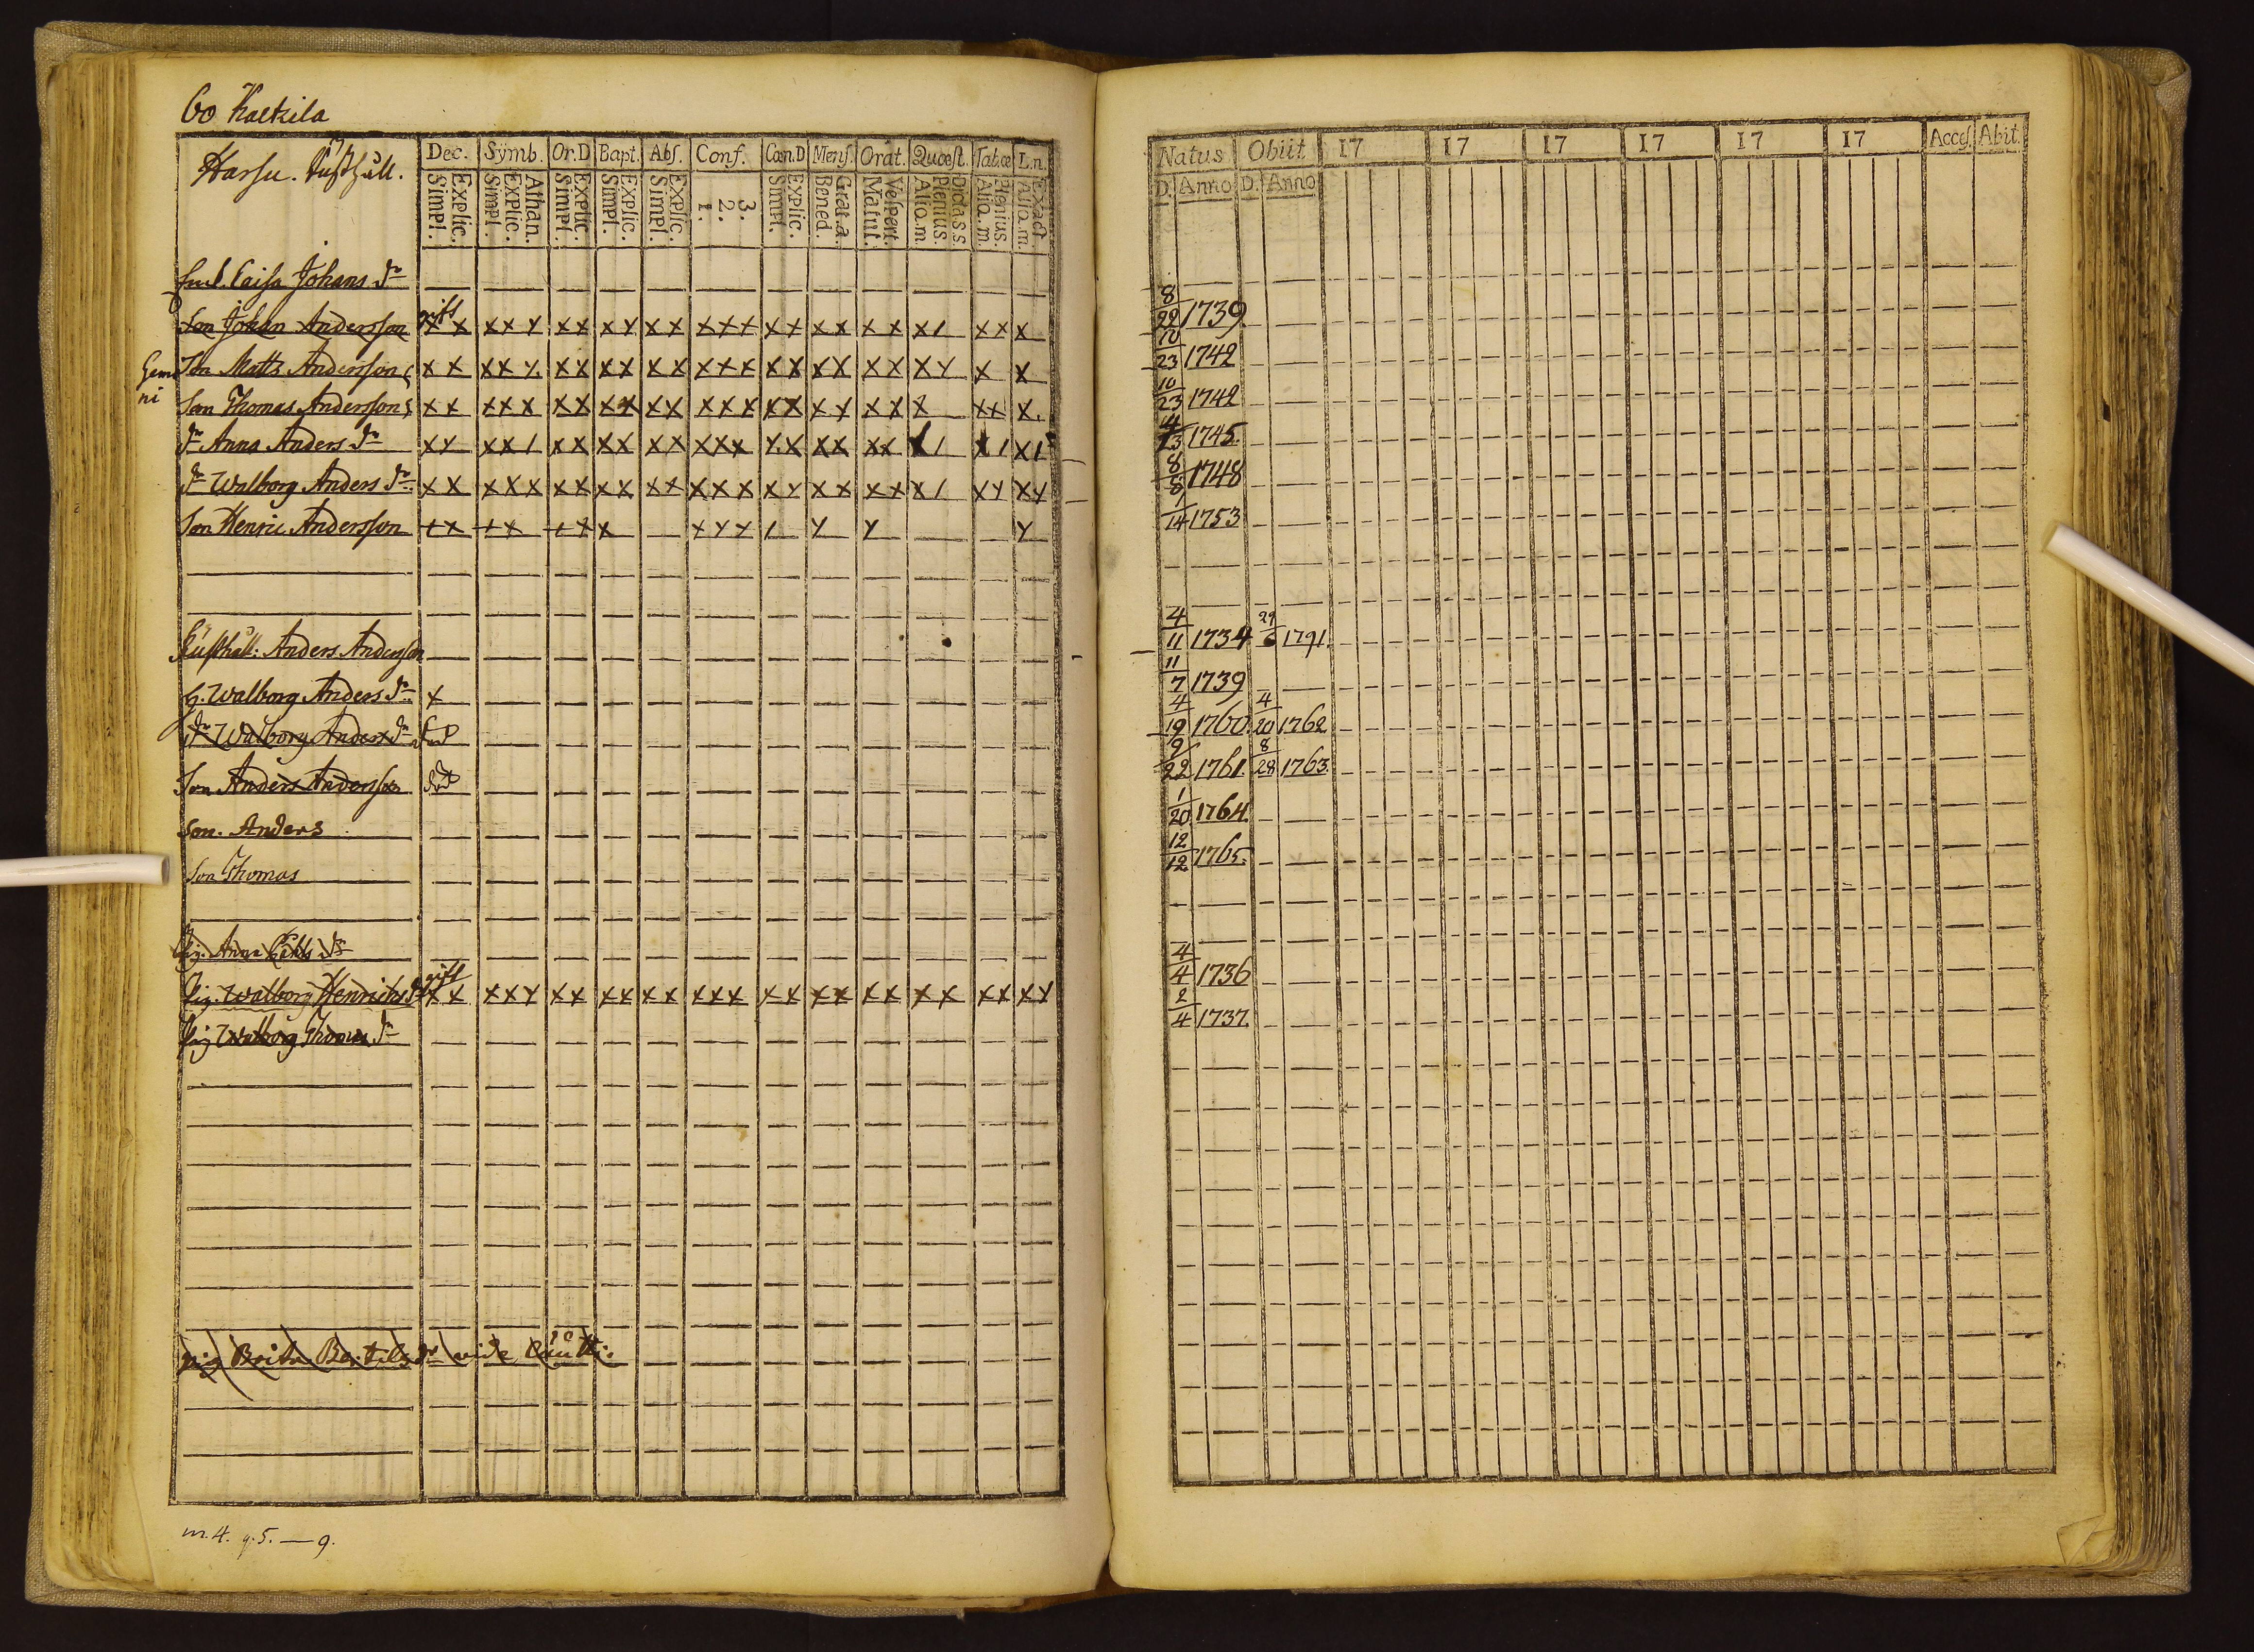 60 Kaekila
Harsu. Rusthåll.
Dec. Symb. Or.D Bapt. Abs. Conf. Cœn.D Mens. Orat. Quœst. Tab.œ L.n.
Simpl. Explic. Simpl. Explic. Athan. Simpl. Explic. Simpl. Explic. Simpl. Explic. 1. 2. 3. Simpl. Explic. Bened. Grat.a. Matut. Vespert. Alio.m. Plenius. Dicta.s.s. Aliq.m. Plenius. Aliq.m. Exact.
Caisa Johans dr
Son Johan Andersson gift x x x x y x x x y x x x x x x x x x x x x 1 x x x
Gemini
Son Matts Andersson x x x x y x x x x x x x x x x x x x x x x y x x
Son Thomas Andersson x x x x x x x x x x x x x x x x x y x x x x x x
dr Anna Anders dr x y x x 1 x x x x x x x x x y x x x x x x 1 x 1 x 1
dr Walborg Anders dr x x x x x x x x x x x x x x x y x x x x x 1 x y x y
Son Henric Andersson + x + x + x x x y y 1 y y y
Rusthåll: Anders Andersson
h. Walborg Anders dr x
dr Walborg Anders dr
Son Anders Andersson
Son. Anders
Son Thomas
Pig. Anna dr
Pig. Walborg Henrichs dr gift x x x x y x x x x x x x x x x x x x x x x x x x x y
Pig Walborg Thomas dr
pig Brita Bertils dr vide
m. 4. q. 5. — 9.
Natus Obiit 17 17 17 17 17 17 Access. Abit.
D. Anno D. Anno
8/22 1739
10/23 1742
10/23 1742
4/13 1745
8/8 1748
1/14 1753
4/11 1734 29/6 1791
11/7 1739
4/19 1760 4/20 1762
9/22 1761. 8/28 1763.
1/20 1764
12/12 1765
4/4 1736
2/4 1737